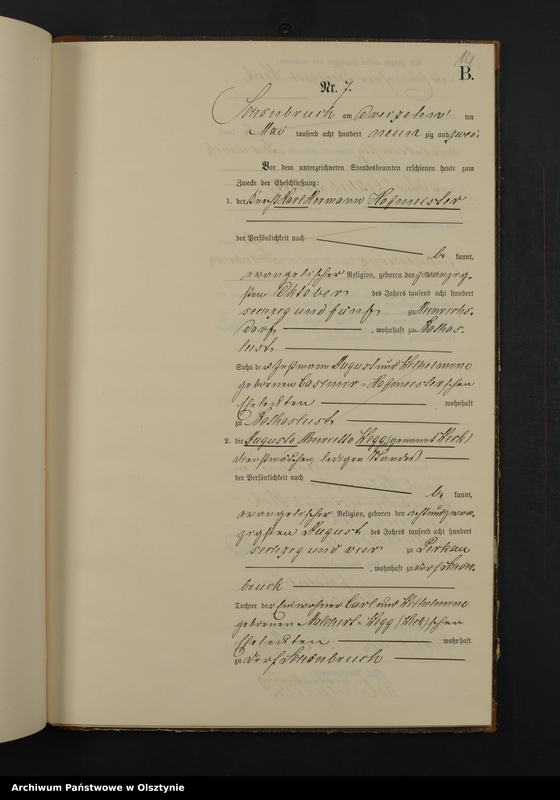 14
B.
Nr. 7.
Schönbruch am dreizehn ten
Mai tausend acht hundert neun zig und zwei
Vor dem unterzeichneten Standesbeamten erschienen heute zum
Zwecke der Eheschließung:
1. der Karl Hermann Hofmeister
der Persönlichkeit nach
be kannt,
evangelischer Religion, geboren den zwanzig-
sten Oktober des Jahres tausend acht hundert
sechzig und fünf zu
dorf , wohnhaft zu Rothas-
lust
Sohn des August und Wilhelmine
geborenen Casimir-Hofmeisterschen
Eheleuten wohnhaft
zu
2. die Auguste Henriette Hegg (genannt Heck)
ledigen Standes
der Persönlichkeit nach
be kannt,
evangelischer Religion, geboren den achtundzwan-
zigsten August des Jahres tausend acht hundert
sechzig und vier zu
, wohnhaft zu Dorf Schön-
bruch
Tochter der Einwohner Carl und Wilhelmine
geborenen Hegg (Heck)schen
Eheleuten wohnhaft
zu Dorf Schönbruch
Archiwum Państwowe w Olsztynie